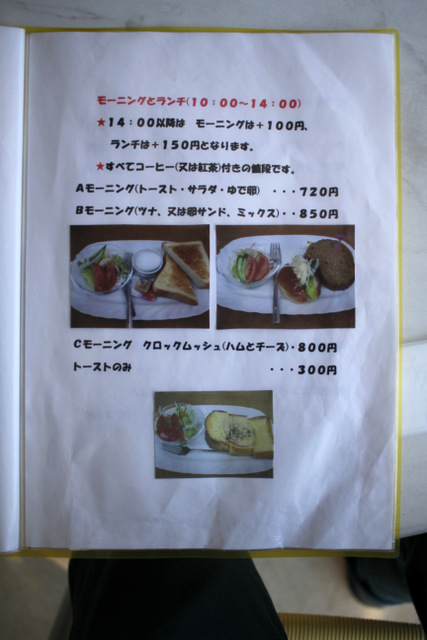 モーニングとランチ(10:00～14:00)
★14:00以降は モーニングは+100円、
ランチは+150円となります。
★すべてコーヒー(又は紅茶)付きの値段です。
Aモーニング(トースト・サラダ・ゆで卵) ・・・720円
Bモーニング(ツナ、又は卵サンド、ミックス)・・850円
Cモーニング クロックムッシュ(ハムとチーズ)・800円
トーストのみ ・・・300円